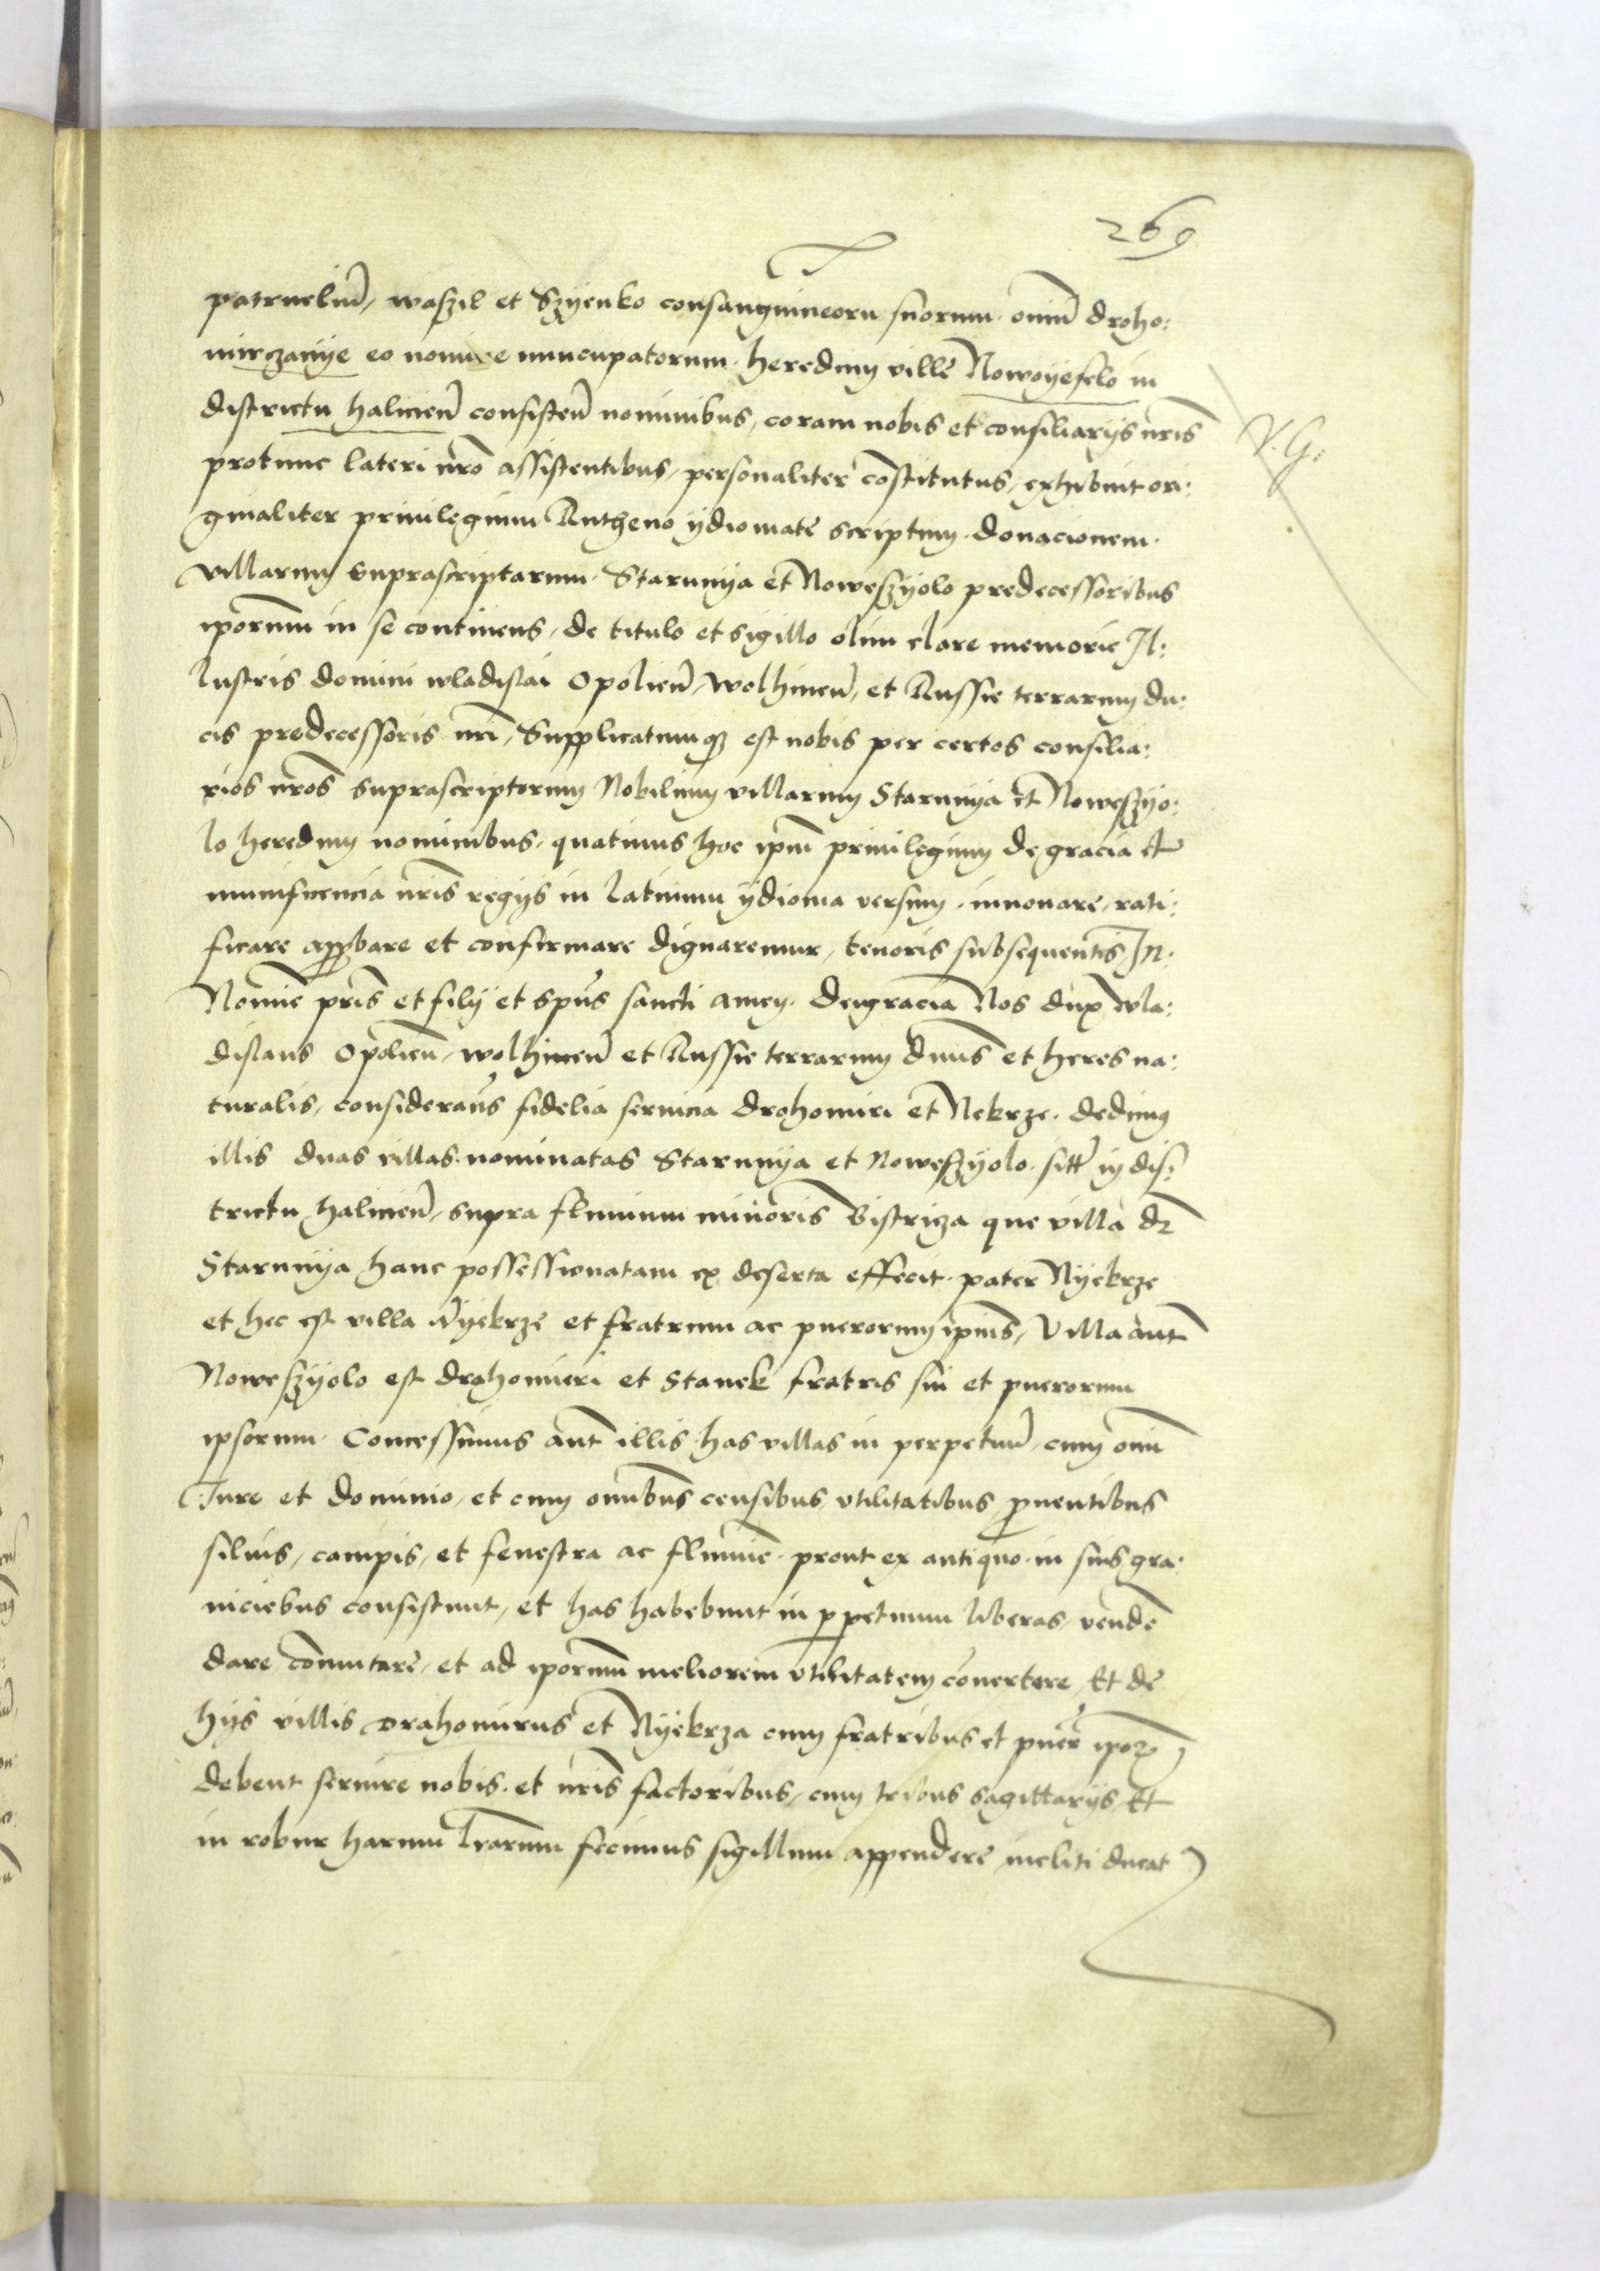 269
patrueliu͂, waszil et Szyenko consanguineoru suorum. oniu͂ droho:
mirczanye eo nomine nuncupatorum. heredum ville Nowoyeselo in
districtu halicien͂ consisten͂ nominibus, coram nobis et consiliarys nr͂is
protunc lateri nr͂o assistentibus, personaliter co͂stitutus, exhibuit ori:
ginaliter priuilegium Rutheno ydiomate scriptum. donacionem.
villarum suprascriptarum. Starunya et Noweszyolo predecessoribus
ip͂orum in se continens, de titulo et sigillo olim clare memorie Il:
lustris domini wladislai Opolien͂, wolhinen͂, et Russie terrarum du:
cis predecessoris nr͂i, Supplicatumq3 est nobis per certos consilia:
rios nr͂os suprascriptorum Nobilium villarum Starunya et Noweszyo:
lo heredum nominibus, quatinus hoc ip͂m priuilegium de gracia et
munificencia nr͂is regys in latinum ydioma versum, innouare, rati:
ficare app͂bare et confirmare dignaremur, tenoris subsequentis, In.
No͂ie pr͂is et fily et sp͂us sancti amen. Dei gracia Nos dux wla:
dislaus Opolien͂, wolhinen͂ et Russie terrarum dn͂us et heres na:
turalis, considera͂us fidelia seruicia drohomiri et Nekrze. dedimus
illis duas villas. nominatas Starunya et Noweszyolo. sitt͂ in dis:
trictu halicien͂, supra fluuium minoris Bistricza que villa d͂r
Starunya hanc possessionatam ex deserta effecit. pater Nyekrze
et hec est villa Nyekrze et fratrum ac puerorum ipius, Villa aut͂
Noweszyolo est drohomieri et Stanek fratris sui et puerorum
ipsorum. Concessimus aut͂ illis has villas in perpetuu͂, cum om͂i
Iure et dominio, et cum om͂ibus censibus, vtilitatibus, p͂uentibus
siluis, campis, et fenestra ac flumi͂e. prout ex antiquo. in suis gra:
niciebus consistunt, et has habebunt in p͂petuum liberas, vende͂
dare, co͂mutare, et ad ip͂orum meliorem vtilitatem co͂uertere, Et de
hys villis Drahomirus et Nyekrza cum fratribus et puer͂ ipor͂
debent seruire nobis. et nr͂is factoribus, cum tribus sagittarys, Et
in robur harum lr͂arum fecimus sigillum appendere incliti ducat͂
V. G: